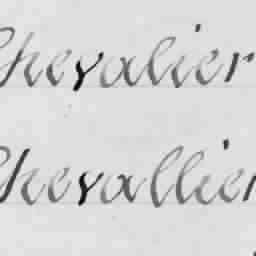 Chevalier
Chevallier